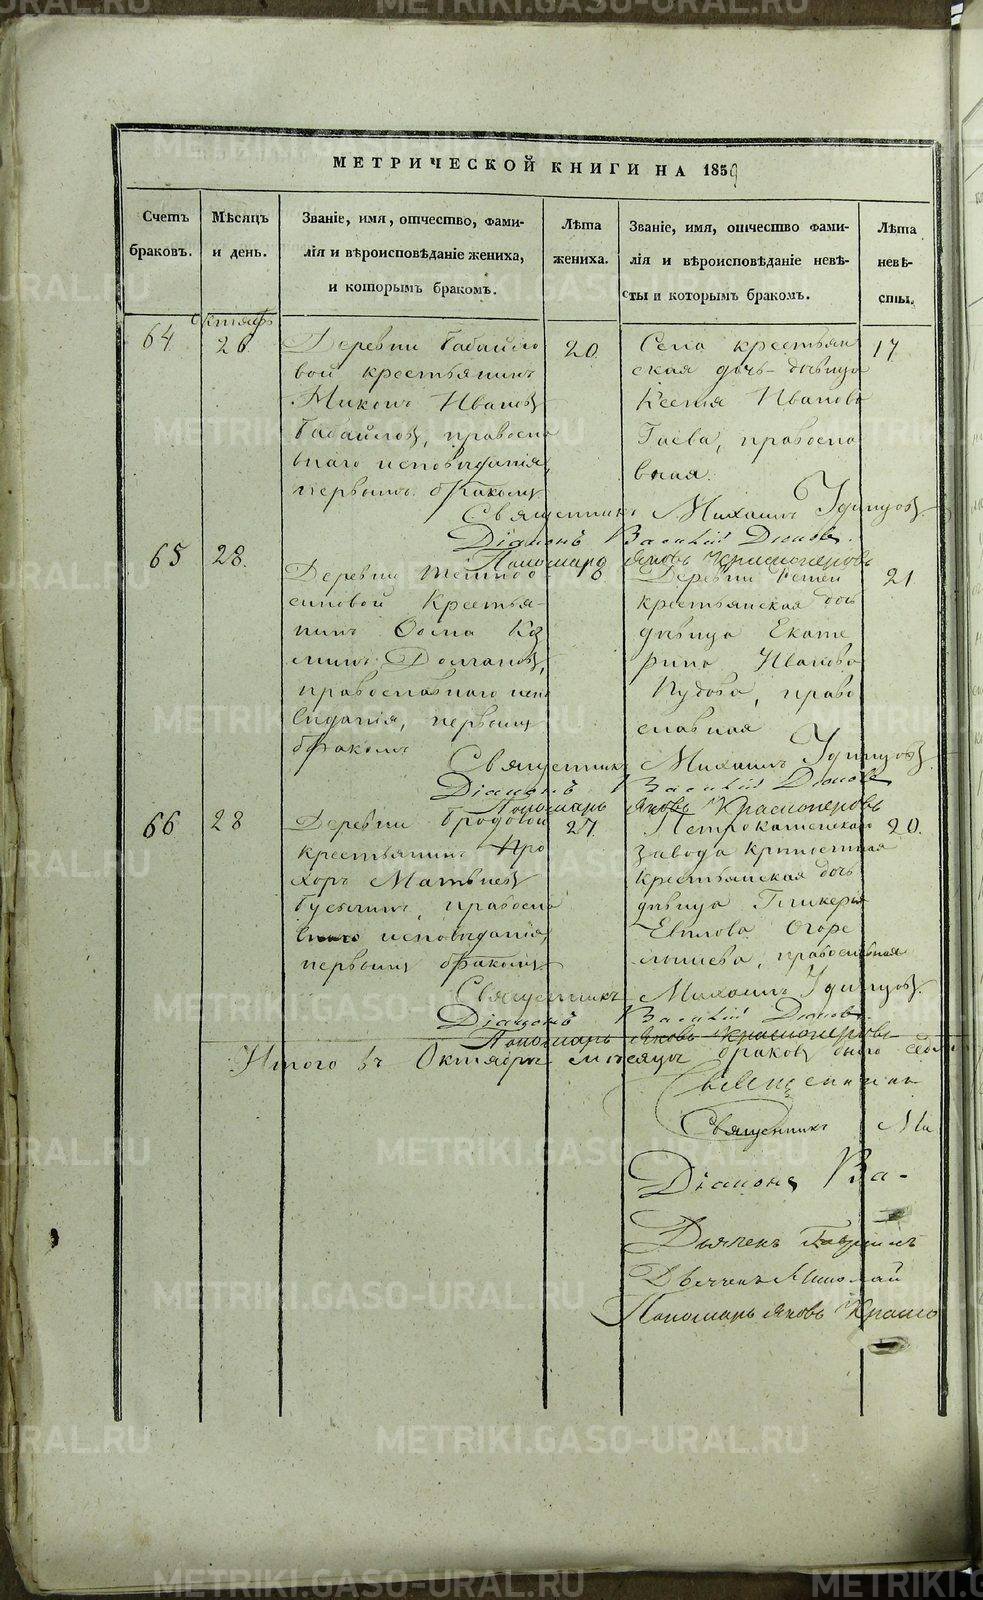 МЕТРИЧЕСКОЙ КНИГИ НА 1859
Счетъ браковъ.
Мѣсяцъ и день.
Званіе, имя, отчество, фами-
лія и вѣроисповѣданіе жениха,
и которымъ бракомъ.
Лѣта
жениха.
Званіе, имя, отчество фами-
лія и вѣроисповѣданіе невѣ-
сты и которымъ бракомъ.
Лѣта
невѣ-
сты.
Октябрь
64
26
Деревни Бабайло
вой крестьянинъ
Никонъ Ивановъ
Бабайловъ, правосла
внаго исповѣданія,
первымъ бракомъ
20
Села крестьян
ская дочь дѣвица
Ксенія Иванова
Гаева, правосла
вная.
17
Священникъ Михаилъ Удинцовъ.
Діаконъ Василій
Пономарь Яковъ Красноперовъ
65
28.
Деревни
синовой Крестья-
нинъ Ѳома Коз
минъ Долгановъ,
православнаго испо
вѣданія, первымъ
бракомъ
8
Деревни
крестьянская дочь
дѣвица Екате
рина Иванова
Пудова, право
славная
21
Священникъ Михаилъ Удинцовъ
Діаконъ Василій
Пономарь Яковъ Красноперовъ
66
28
Деревни Бродовой
крестьянинъ Про
хоръ Матвѣевъ
Гусевъ, правосла
внаго исповѣданія,
первымъ бракомъ.
27.
Петрокаменскаго
завода
крестьянская дочь
дѣвица Гликерья
Огоре
лышева, православная
20.
Священникъ Михаилъ Удинцовъ.
Діаконъ Василій
Пономарь Яковъ Красноперовъ
Итого въ Октябрѣ мѣсяцѣ браковъ было
Священникъ
Священникъ Ми
Діаконъ Ва-
Дьячекъ Гавріилъ
Дьячекъ Николай
Пономарь Яковъ Красно
METRIKI.GASO-URAL.RU